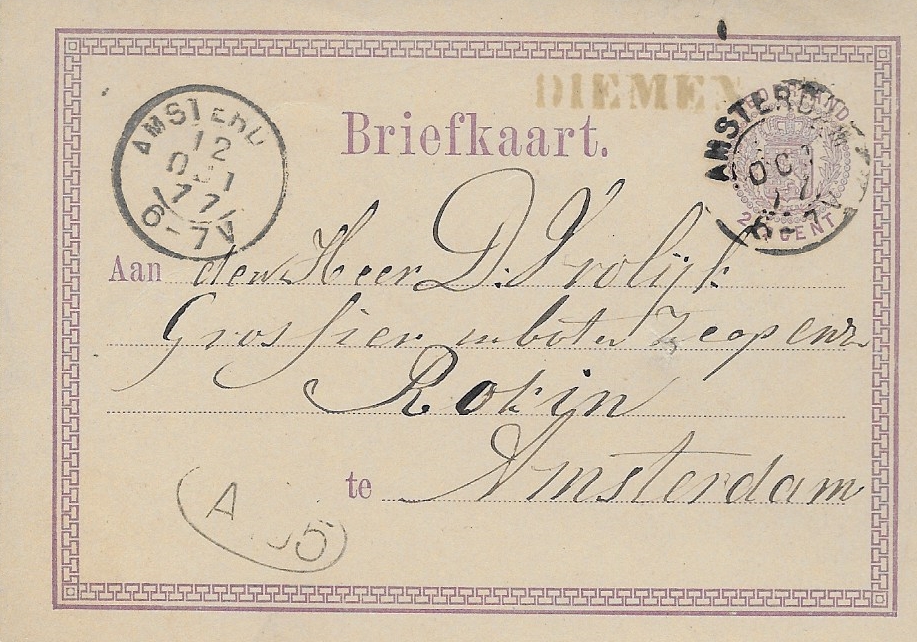 DIEMEN
AMSTERD
12
OCT
77
6-7V
AMSTERDAM
OCT
6-7V
CENT
Briefkaart.
Aan den Heer D. Vrolijk
Grossier in boter Zeep enz
Rokin
te Amsterdam
A 5